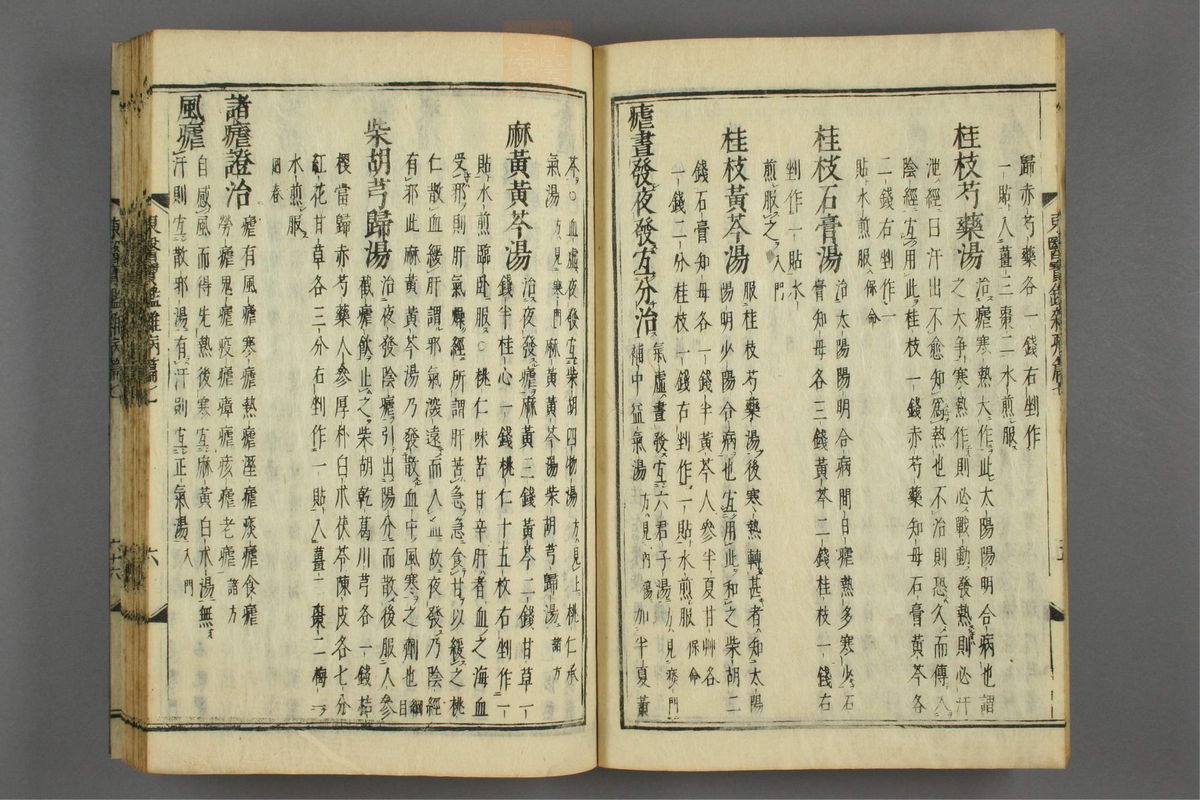 歸赤芍藥各一錢右剉作
一貼入薑三棗二水煎服
桂枝芍藥湯 治瘧寒熱大作此太陽陽明合病也謂
之大爭寒熱作則必戰動發熱則必汗
泄經曰汗出不愈知爲熱也不治則恐久而傳入
陰經宜用此桂枝一錢赤芍藥知母石膏黃芩各
二錢右剉作一
貼水煎服 保命
桂枝石膏湯 治太陽陽明合病間日瘧熱多寒少石
膏知母各三錢黃芩二錢桂枝一錢右
剉作一貼水
煎服之 入門
桂枝黃芩湯 服桂枝芍藥湯後寒熱轉甚者知太陽
陽明少陽合病也宜用此和之柴胡二
錢石膏知母各一錢半黃芩人參半夏甘艸各
一錢二分桂枝一錢右剉作一貼水煎服 保命
瘧晝發夜發宜分治 氣虛晝發宜六君子湯 方見痰門
補中益氣湯 方見內傷 加半夏黃
芩○血虛夜發宜柴胡四物湯 方見上 桃仁承
氣湯 方見寒門 麻黃黃芩湯柴胡芎歸湯 諸方
麻黃黃芩湯 治夜發瘧麻黃三錢黃芩二錢甘草一
錢半桂心一錢桃仁十五枚右剉作一
貼水煎臨臥服○桃仁味苦甘辛肝者血之海血
受邪則肝氣燥經所謂肝苦急急食甘以緩之桃
仁散血緩肝謂邪氣深遠而入血故夜發乃陰經
有邪此麻黃黃芩湯乃發散血中風寒之劑也 綱目
柴胡芎歸湯 治夜發陰瘧引出陽分而散後服人參
截瘧飮止之柴胡乾葛川芎各一錢桔
梗當歸赤芍藥人參厚朴白朮茯苓陳皮各七分
紅花甘草各三分右剉作一貼入薑三棗二梅一
水煎服
回春
諸瘧證治 瘧有風瘧寒瘧熱瘧濕瘧痰瘧食瘧
勞瘧鬼瘧疫瘧瘴瘧痎瘧老瘧 諸方
風瘧 自感風而得先熱後寒宜麻黃白朮湯無
汗則宜散邪湯有汗則宜正氣湯 入門
東醫寶鑑雜病篇七
六